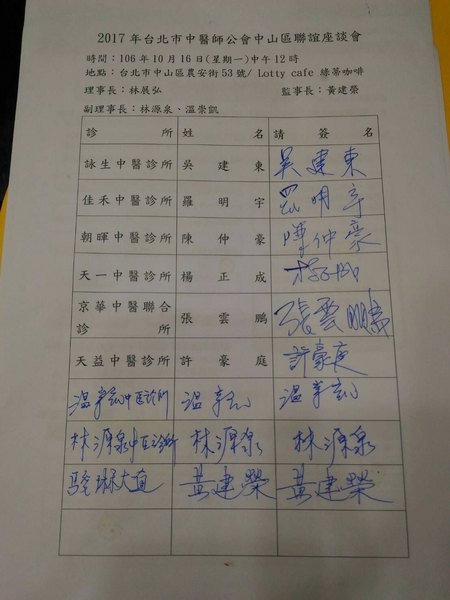 2017年台北市中醫師公會中山區聯誼座談會
時間：106年10月16日(星期一)中午12時
地點：台北市中山區農安街53號/ Lotty cafe 綠蒂咖啡
理事長：林展弘 監事長：黃建榮
副理事長：林源泉、溫崇凱
診所 姓名 請簽名
詠生中醫診所 吳建東 吳建東
佳禾中醫診所 羅明宇 羅明宇
朝暉中醫診所 陳仲豪 陳仲豪
天一中醫診所 楊正成
京華中醫聯合
診所 張雲鵬 張雲鵬
天益中醫診所 許豪庭 許豪庭
林源泉中医診所 林源泉 林源泉
黃建榮 黃建榮